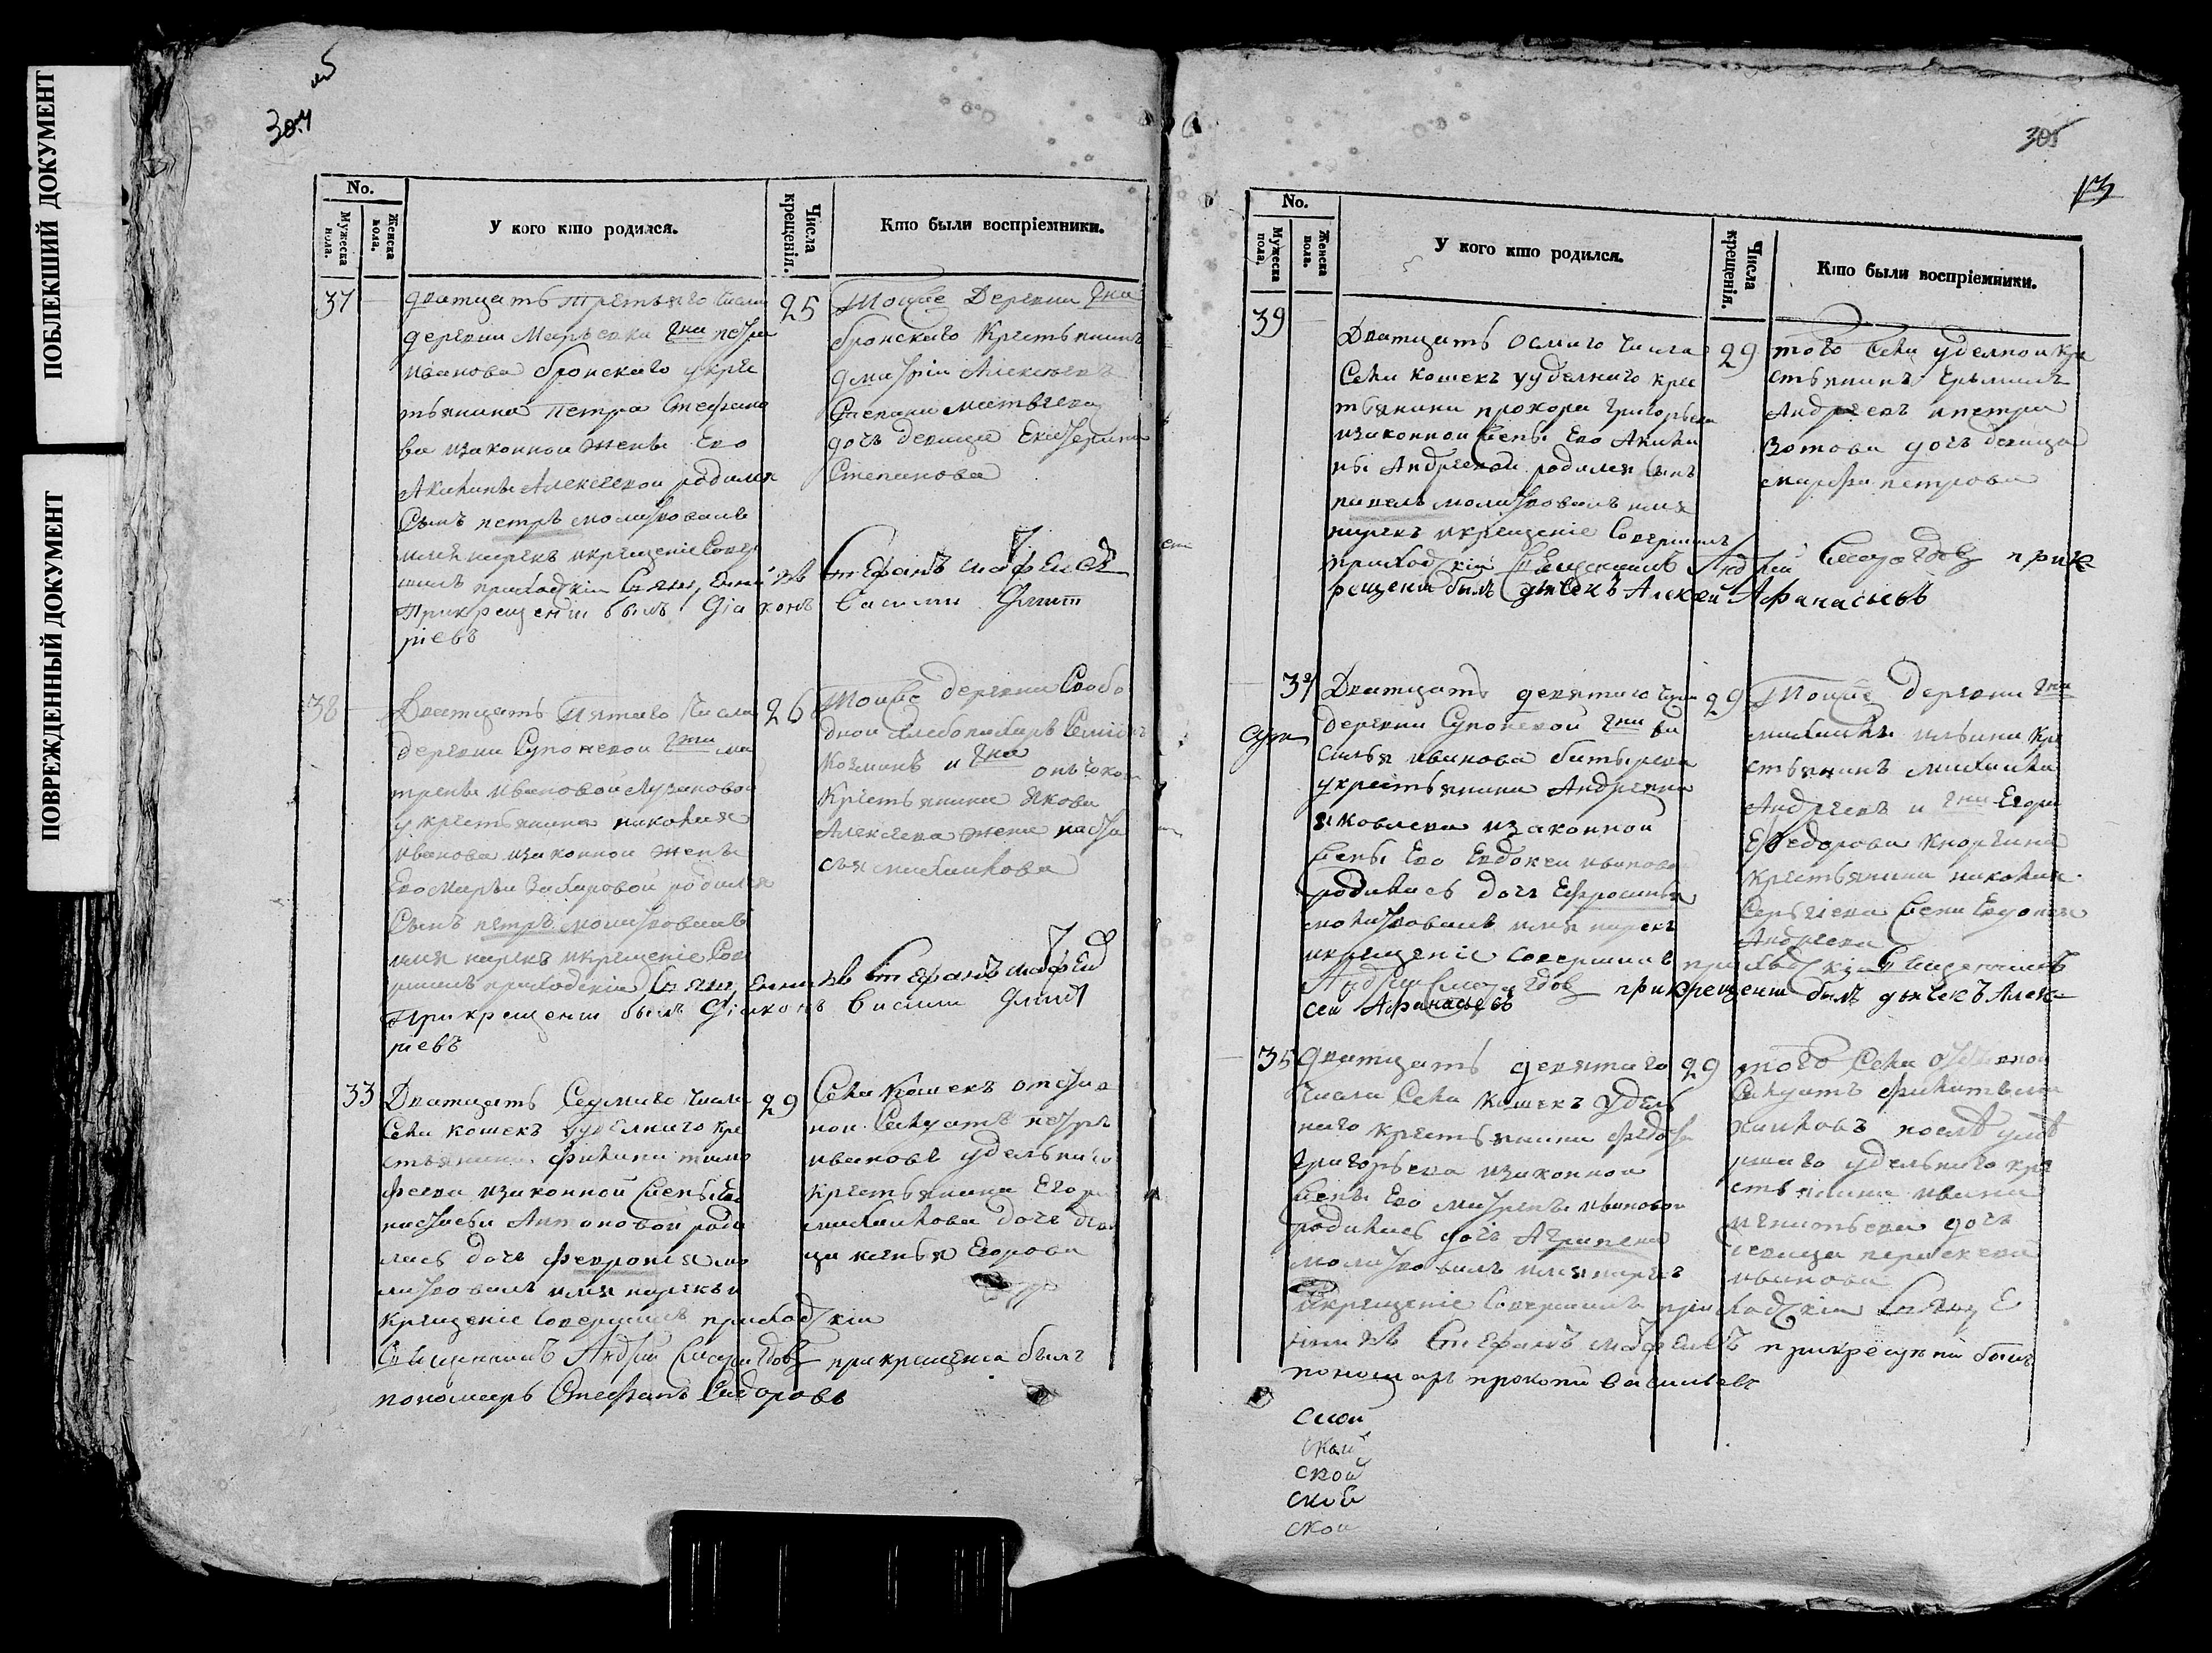 ПОБЛЕКШИЙ ДОКУМЕНТ
ПОВРЕЖДЕННЫЙ ДОКУМЕНТ
304
No.
Мужеска пола.
Женска пола.
У кого кто родился.
Числа крещенія.
Кто были воспріемники.
37
дватцать третьяго числа
деревни Марьевки гна петра
иванова бронскаго у кре
тьянина Петра Стефано
ва изаконной жены Его
Акилины Алексеевои родился
Сынъ петръ молитвовалъ
имя нарекъ икрещеніе Совер
шилъ приходскіи Священникъ Стефанъ
При крещении былъ Діаконъ Василии Дмит
ріевъ
25
Тоиже Деревни гна
бронскаго Крестьянинъ
дмитріи Алексеевъ
Степана матвеева
дочь девица Екатерина
Степанова
38
Дватцать Пятаго Числа
деревни Супоневой гжи ма
трены Ивановой Лузановой
у крестьянина николая
иванова изаконнои жены
Его Марьи Захаровой родился
Сынъ петръ молитвовалъ
имя нарекъ икрещеніе Сове
ршилъ приходскіи Священникъ Стефанъ
При крещении былъ Діаконъ Василии Дмит
ріевъ
26
Тоиже деревни Свобо
днои хлебопахарь
Козминъ и гна
Крестьянина Якова
Алексеева жена наста
сья михаилова
33
Дватцать Седмаго Числа
Села кошекъ уудельнаго кре
стьянина филипа тимо
феева изаконной Жены Его
настасьи Антоновой роди
лась дочь феврония мо
литвовалъ имя нарекъ и
крещение Совершилъ приходскіи
Священникъ Андреи при крещении былъ
пономарь Стефанъ Сидоровъ
29
Села Кошекъ отстав
нои Салдатъ петръ
ивановъ удельнаго
крестьянина Егора
михаилова дочь деви
ца ксенья Егорова
305
13
No.
Мужеска пола.
Женска пола.
У кого кто родился.
Числа крещенія.
Кто были воспріемники.
39
Дватцать Осмаго Числа
Села кошекъ уудельнаго крес
тьянина прохора Григорьева
изаконнои Жены Его Акили
ны Андреевой родился Сынъ
павелъ молитвовалъ имя
нарекъ икрещение Совершилъ
приходскіи Священникъ Андреи при к
рещении былъ дьячекъ Алексеи Афанасьевъ
29
того Села уделнои кре
стьянинъ
Андреевъ ипетра
Зотова дочь девица
марфа петрова
34
Дватцать девятаго числа
деревни Супоневой гна ва
силья иванова батырева
укрестьянина Андреяна
яковлева изаконной
Жены Его Евдокеи ивановой
родилась дочь Ефросинья
молитвовалъ имя нарекъ
икрещеніе Совершилъ приходскіи Священникъ
Андреи при крещении былъ дьячекъ Алек
сеи Афанасьевъ
29
Тоиже деревни гна
михаилы ильина кре
стьянинъ михаила
Андреевъ и гна Егора
Федорова
крестьянина николая
Сергіева Жена Евдокея
Андреева
35
Дватцать девятаго
Числа Села Кошекъ Удель
наго крестьянина федота
Григорьева изаконнои
Жены Его матрены ивановои
родилась дочь Агрипена
молитвовалъ имя нарекъ
икрещение Совершилъ приходскіи Священ
никъ Стефанъ при крещении былъ
пономарь прокопи Васильевъ
29
того Села отставнои
Салдатъ филипъ ми
хаиловъ после уме
ршаго удельнаго кре
стьянина ивана
дочь
девица парасковия
иванова
скои
скои
скои
скои
скои